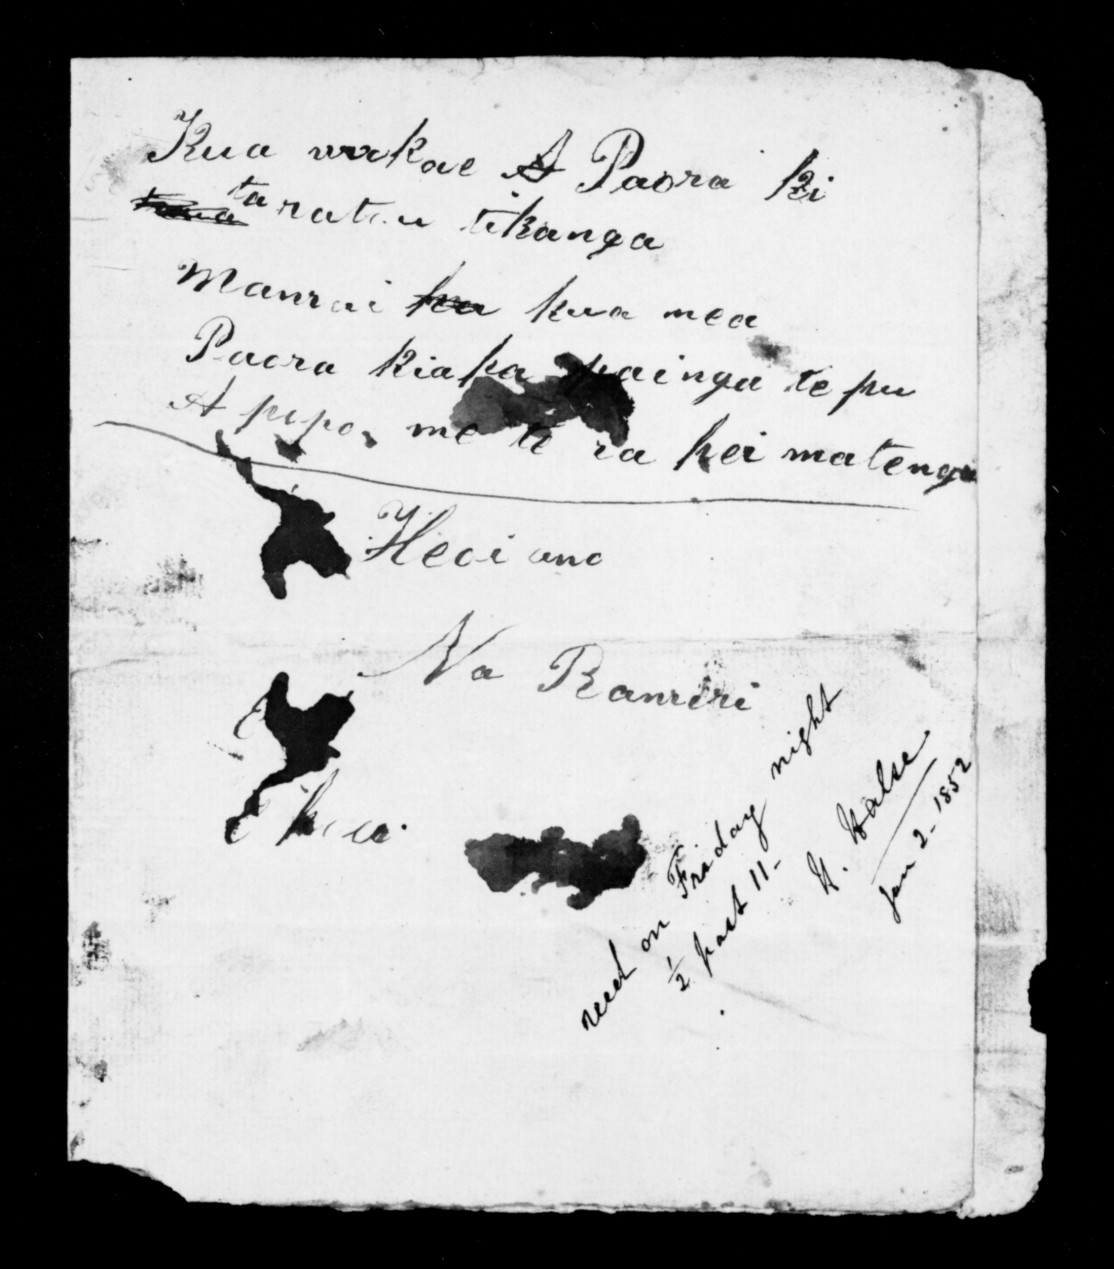 Kua wakae A Paora ki
tana taratou tikanga
Manrai kua kua mea
Paora kiaka painga te pu
A pipo, me te ra hei matenga
Heoi ano
Na Ramiri
E hoa
recd on Friday night
½ past 11-
H. Halse
Jan 2-1852